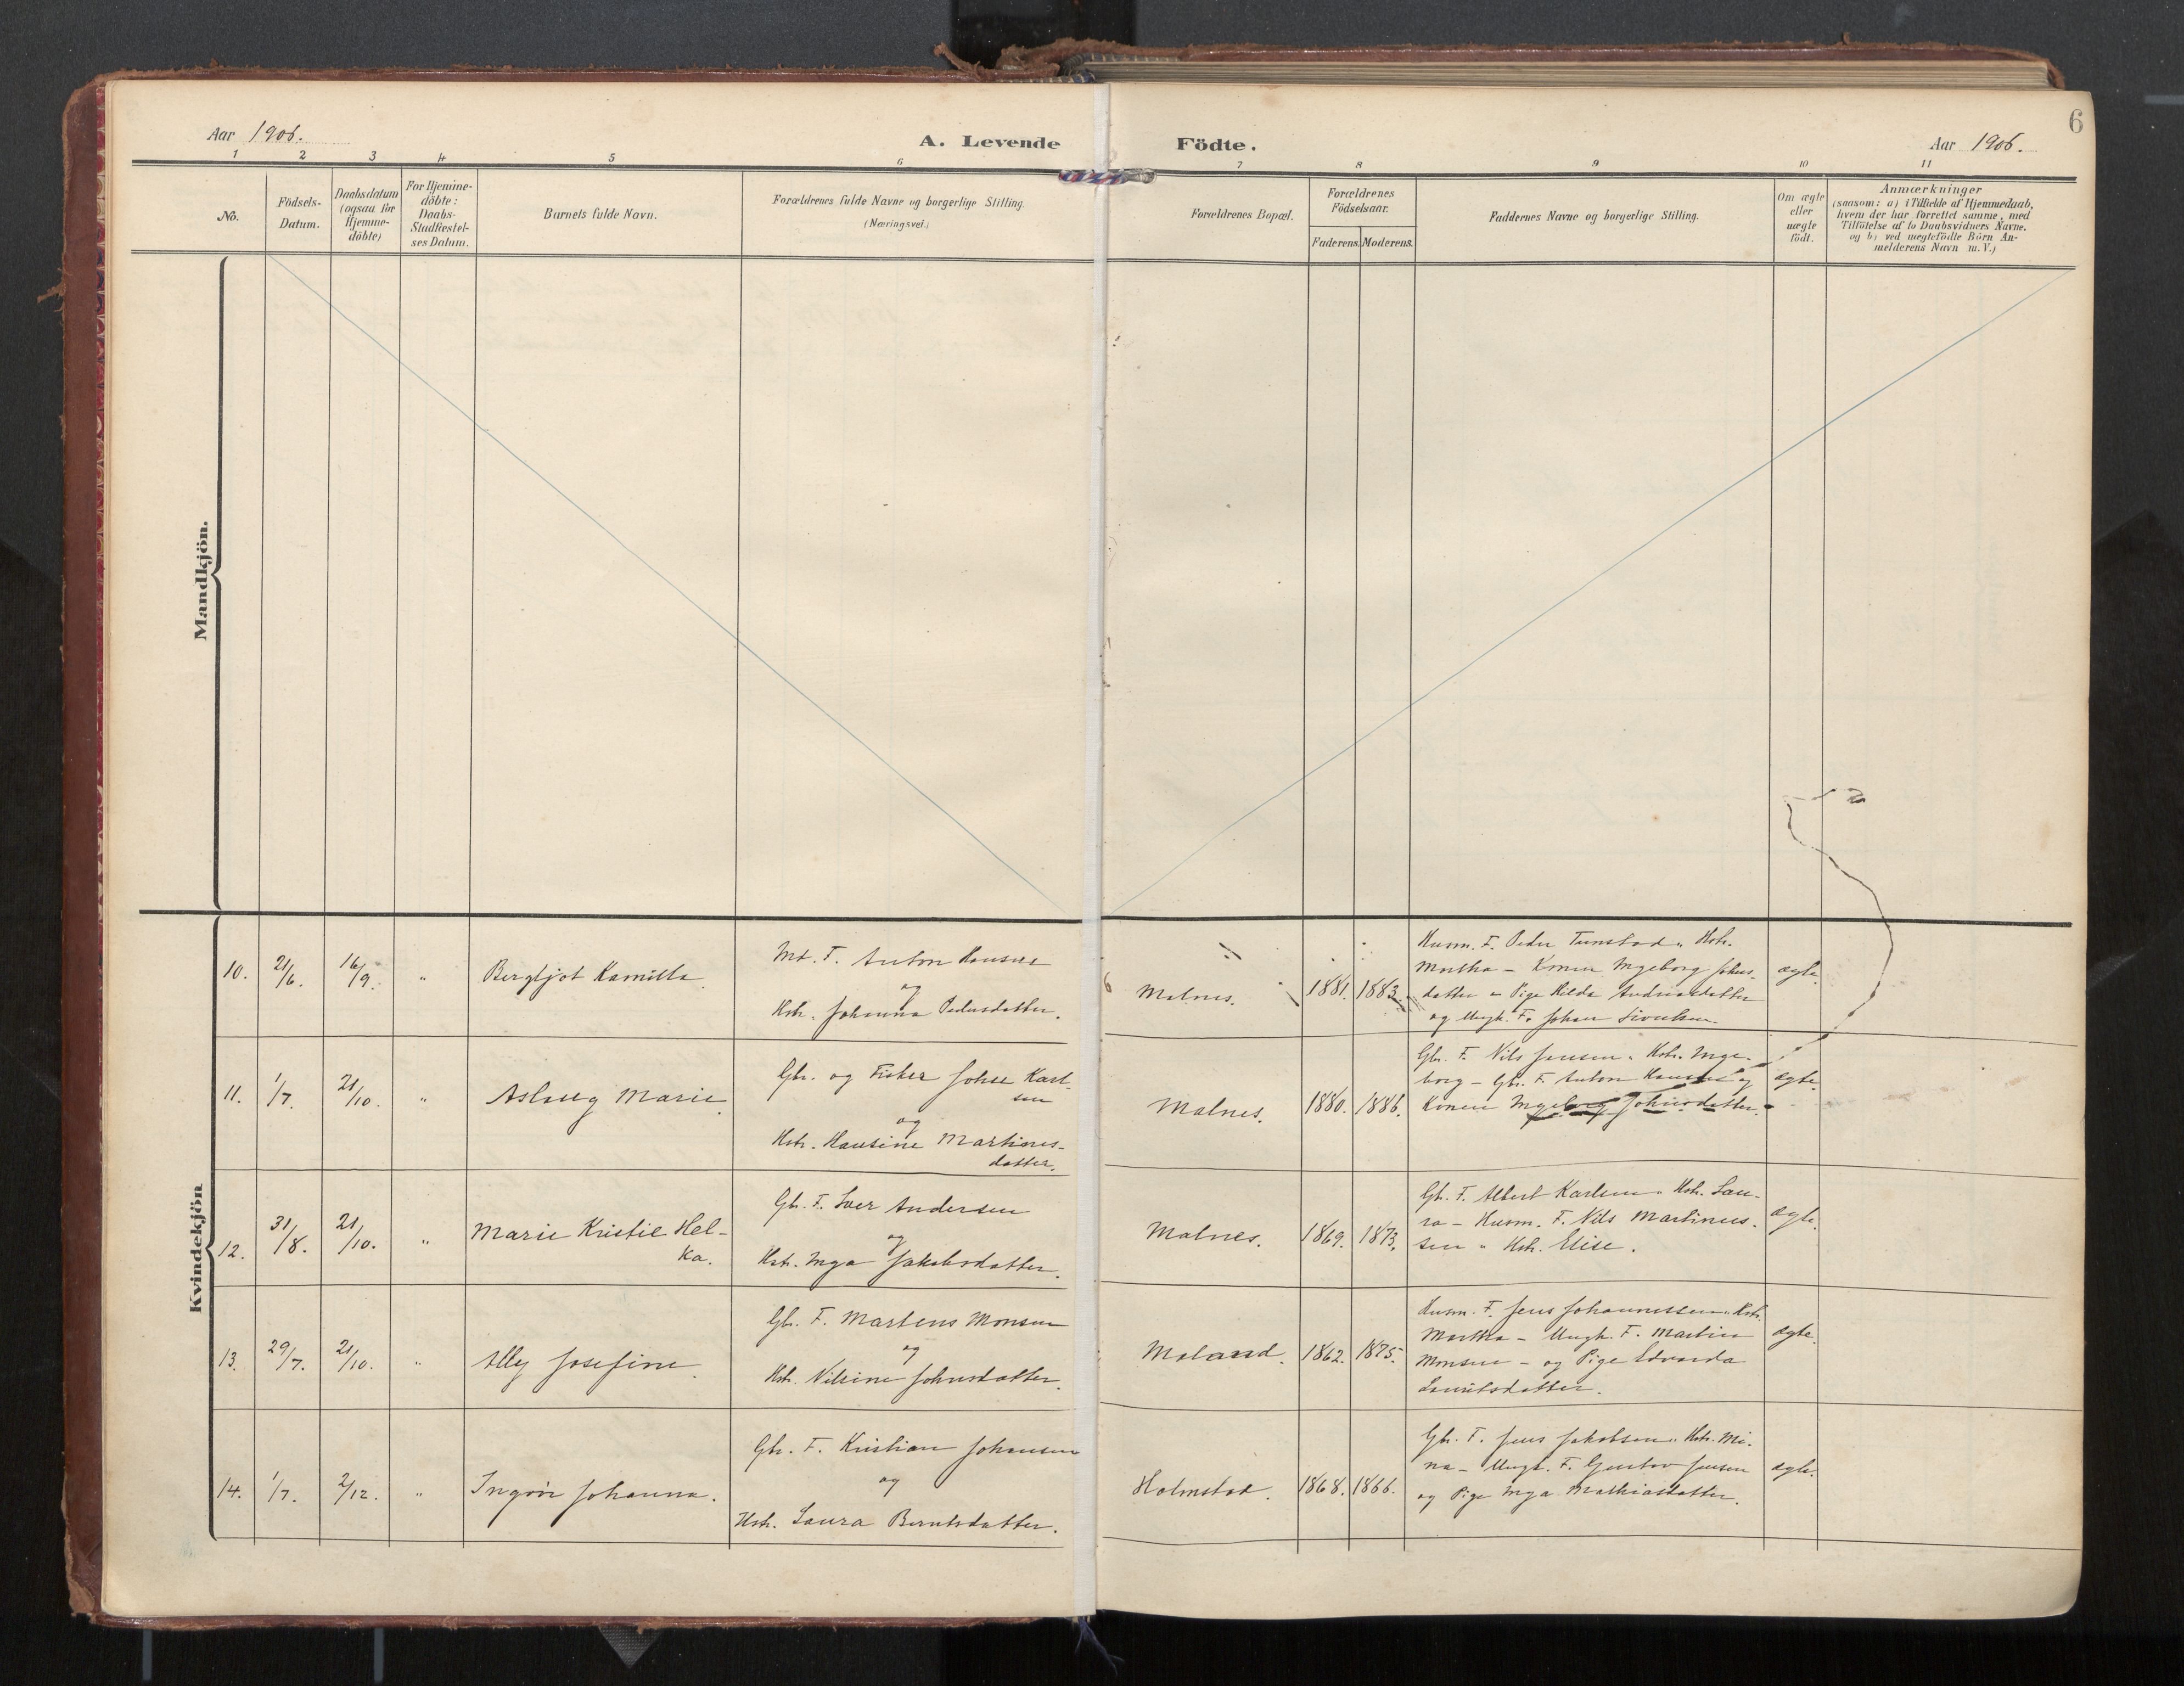 6
Aar 1906.
A. Levende Födte.
Aar 1906.
1 2 3 4 5 6 7 8 9 10 11
No.
Födsels-
Datum.
Daabsdatum
(ogsaa for
Hjemme-
döbte)
For Hjemme-
döbte:
Daabs-
Stadfæstel-
ses Datum.
Barnets fulde Navn.
Forældrenes fulde Navne og borgerlige Stilling.
(Næringsvei.)
Forældrenes Bopæl.
Forældrenes
Födselsaar.
Faderens. Moderens.
Faddernes Navne og borgerlige Stilling.
Om ægte
eller
uægte
födt.
Anmærkninger
(saasom: a) i Tilfælde af Hjemmedaab,
hvem der har forrettet samme, med
Tilföielse af to Daabsvidners Navne.
og b) ved uægtefödte Börn An-
melderens Navn m.V.)
Mandkjön.
Kvindekjön
10.
21/6.
16/9.
"
Bergljot Kamilla.
Md. F. Anton Hansen
og
Hstr. Johanna Pedersdatter.
Malnes.
1881. 1883.
Husm. F. Peder Tunstad " Hstr.
Martha – Konen Ingeborg Johns-
datter – Pige Hilda Andreasdatter
og Ungk. F. Johan
ægte.
11.
1/7.
21/10.
"
Aslaug Marie.
Gbr. og Fisker Johse Karl-
sen
og
Hstr. Hansine Martines-
datter.
Malnes.
1880. 1886.
Gbr. F. Nils Jensen " Hstr. Inge-
borg – Gbr. F. Anton Hansen og
Konen Ingeborg Johnsdatter.
ægte.
12.
31/8.
21/10.
"
Marie Kristie Hel-
ka.
Gbr. F. Iver Andersen
og
Hstr. Inga Jakobsdatter.
Malnes.
1869. 1873.
Gbr. F. Albert Karlsen " Hstr. Lau-
ra – Husm. F. Nils Martinus-
sen " Hstr. Elise.
ægte.
13.
29/7.
21/10.
"
Ally Josefine.
Gbr. F. Martens Monsen
og
Hstr. Nilsine Johnsdatter.
Moland.
1862. 1875.
Husm. F. Jens Johannessen " Hstr.
Martha – Ungk. F. Martin
Monsen – og Pige Edvarda
Lauritsdatter.
ægte.
14.
1/7.
2/12.
"
Ingvir Johanna.
Gbr. F. Kristian Johansen
og
Hstr. Laura Berntsdatter.
Holmstad.
1868. 1866.
Gbr. F. Jens Jakobsen " Hstr. Mi-
na – Ungk. F. Gustav Jensen
og Pige Inga Mathiasdatter.
ægte.